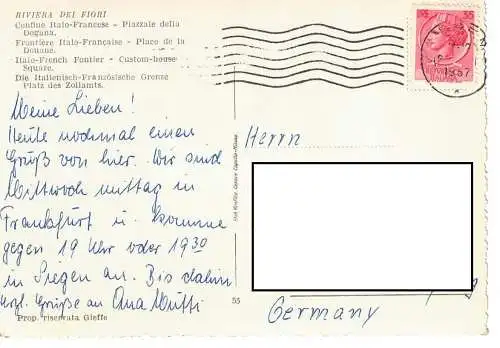 RIVIERA DEI FIORI
Confine Italo-Francese - Piazzale della
Dogana.
Frontière Italo-Française - Place de la
Douane.
Italo-French Fontier - Custom-house
Square.
Die Italienisch-Französische Grenze
Platz des Zollamts.
Meine Lieben!
Heute nochmal einen
Gruß von hier. Wir sind
Mittwoch mittag in
Frankfurt u. komme
gegen 19 Uhr oder 19 30
in Siegen an. Bis dahin
Herzl. Grüße an Oma Mutti
55
Prop. riservata Gleffe
1957
Herrn
Germany